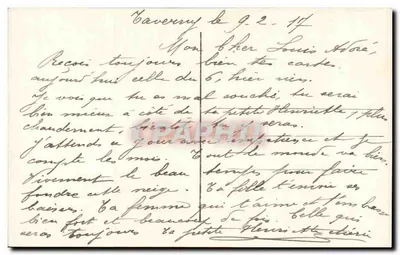 Taverny le 9-2-17
Mon Cher Louis Adoré,
Reçois toujours bien tes cartes
aujourd'hui celle du 6, hier rien.
Je vois que tu es mal couché, tu serai
bien mieux à côté de ta petite Henriette, plus
chaudement, tu serais.
J'attends ce jour avec impatience et je
compte les mois. Tout le monde va bien
Vivement le beau temps pour faire
fondre cette neige. Ta fille t'envoie ses
baisers. Ta femme qui t'aime et t'embrasse
bien fort et beaucoup de fois. Celle qui
sera toujours ta petite Henriette chérie